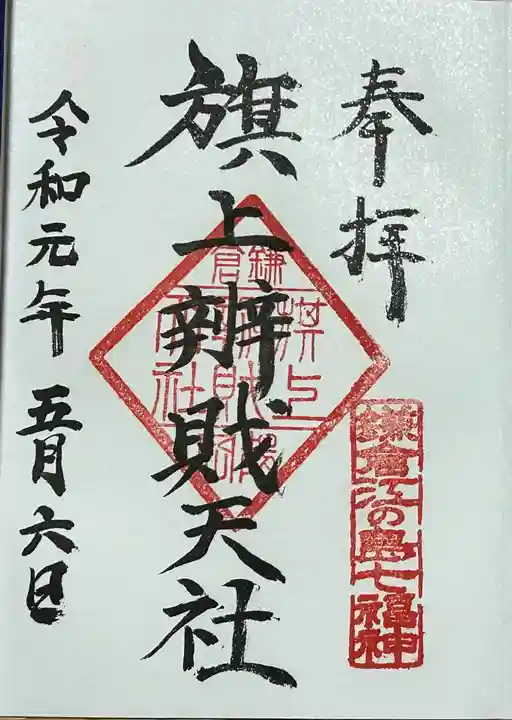 奉拝
鎌倉江の島七福神
旗上辨財天社
鎌倉
旗上
社
令和元年五月六日